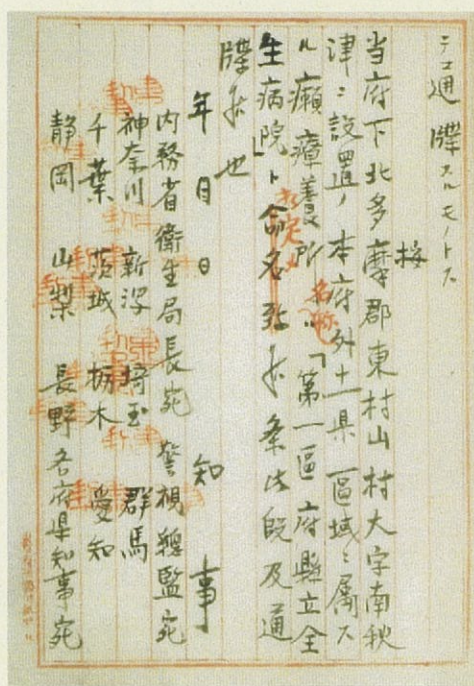 テ通牒スルモノトス
按
当府下北多摩郡東村山村大字南秋
津ニ設置ノ本府外十一県区域ニ属ス
ル癩療養所名称ハ「第一區府縣立全
生病院」ト命名致
牒候也
年月日 知事
内務省衛生局長宛 警視総監宛
神奈川 新潟 埼玉 群馬
千葉 茨城 栃木 愛知
静岡 山梨 長野各府県知事宛